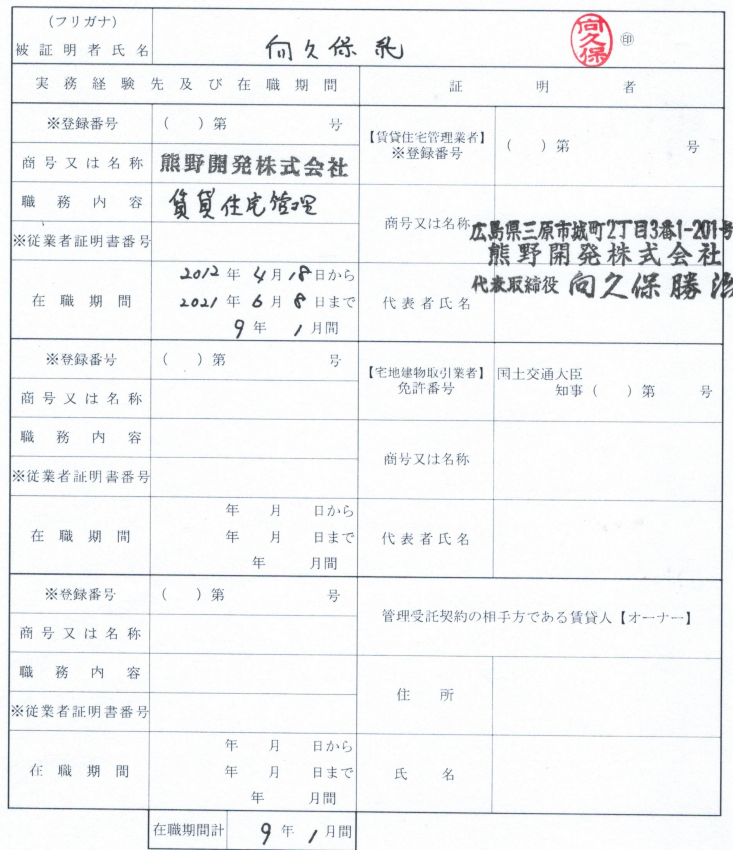 (フリガナ)
被証明者氏名 向久保 印
向久保
実務経験先及び在職期間 証明者
※登録番号 ( )第 号
商号又は名称 熊野開発株式会社
職務内容 賃貸住宅管理
※従業者証明書番号
在職期間 2012年4月18日から
2021年6月8日まで
9年1月間
【賃貸住宅管理業者】
※登録番号 ( )第 号
商号又は名称 広島県三原市城町2丁目3番1-201号
熊野開発株式会社
代表者氏名 代表取締役 向久保勝
※登録番号 ( )第 号
商号又は名称
職務内容
※従業者証明書番号
在職期間 年 月 日から
年 月 日まで
年 月間
【宅地建物取引業者】 国土交通大臣
免許番号 知事( )第 号
商号又は名称
代表者氏名
※登録番号 ( )第 号
商号又は名称
職務内容
※従業者証明書番号
在職期間 年 月 日から
年 月 日まで
年 月間
管理受託契約の相手方である賃貸人【オーナー】
住所
氏名
在職期間計 9年1月間